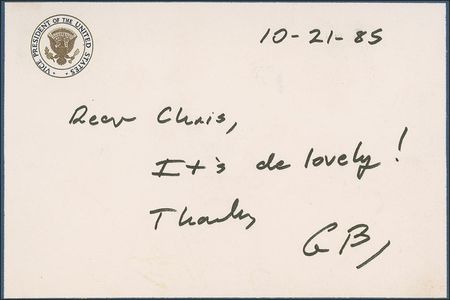 VICE PRESIDENT OF THE UNITED STATES
10-21-85
Dear Chris,
It's de lovely!
Thanks
GB,